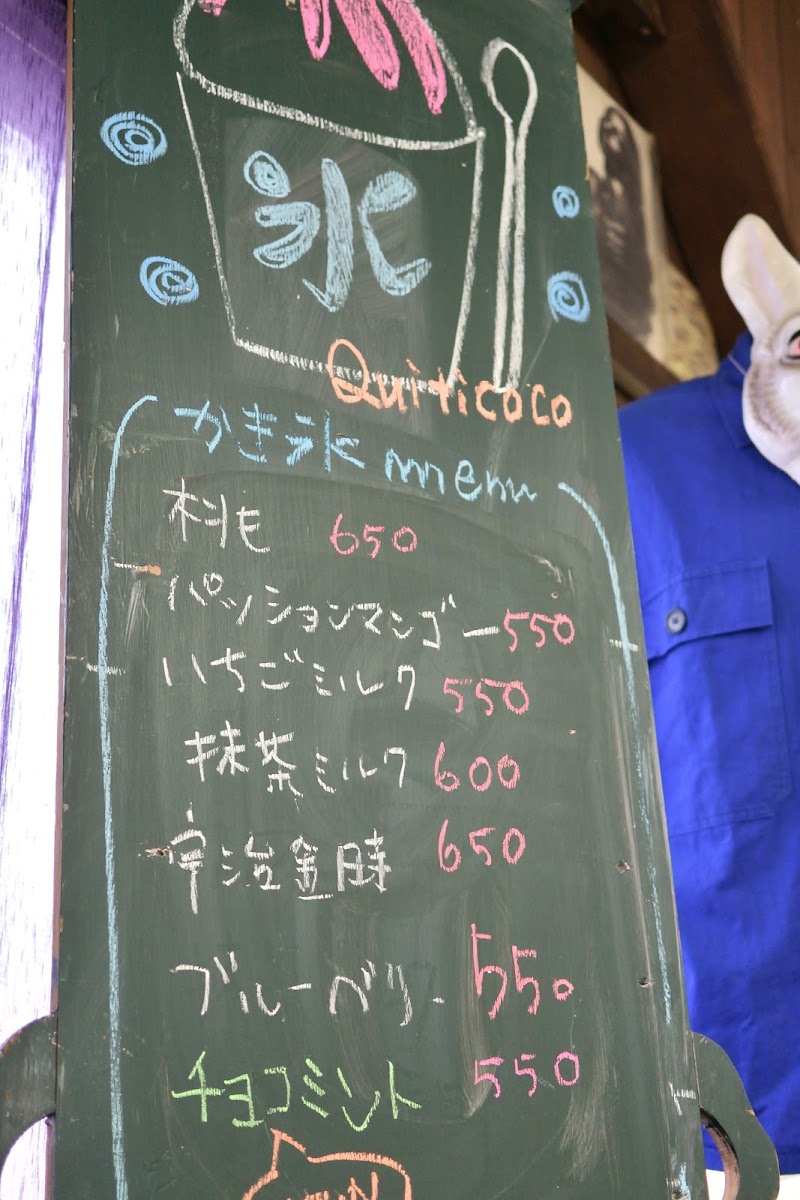 氷
Quiticoco
かき氷 menu
桃 650
パッションマンゴー 550
いちごミルク 550
抹茶ミルク 600
宇治金時 650
ブルーベリー 550
チョコミント 550